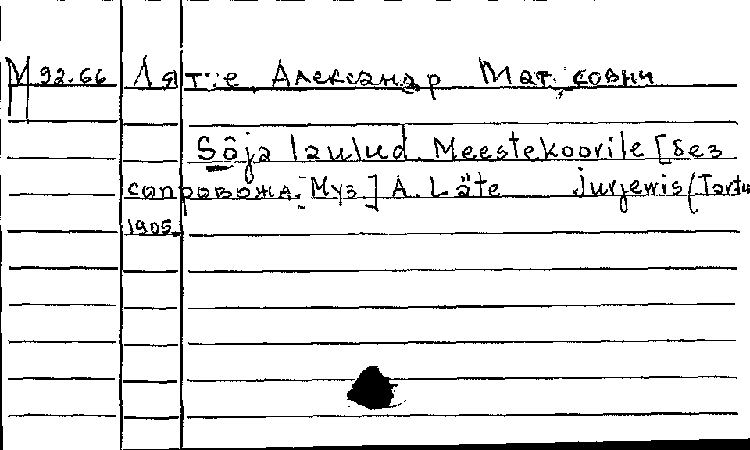 М 92.66 Лятте Александр Матисович
Sõja laulud. Meestekoorile [без
сопровожд. Муз.] A. Läte Jurjewis (Tartu
1905.